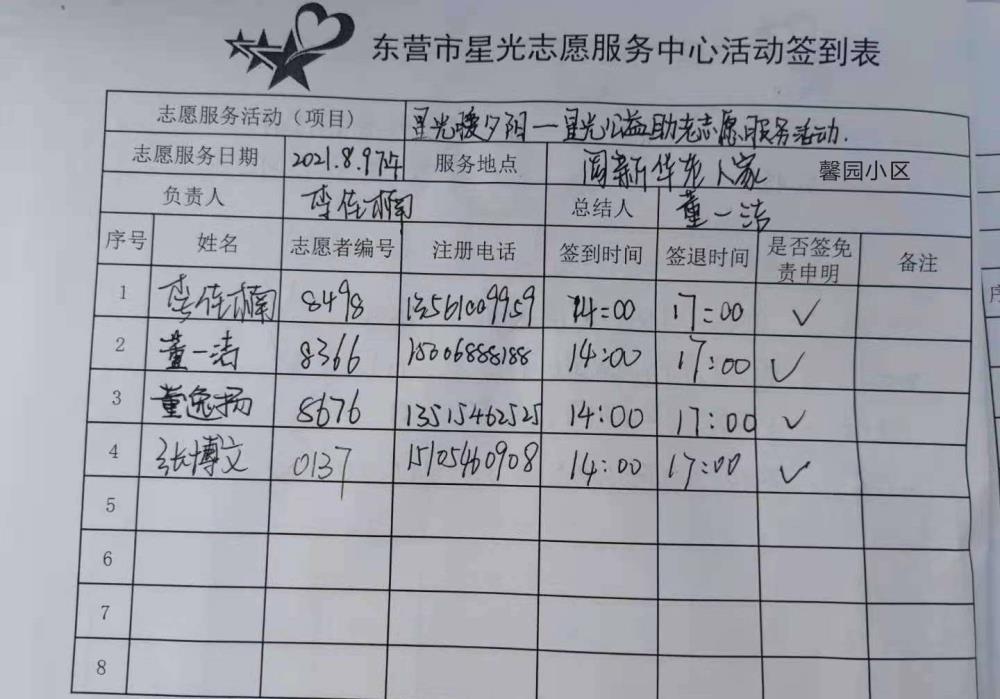 东营市星光志愿服务中心活动签到表
志愿服务活动（项目） 星光暖夕阳一星光公益助老志愿服务活动.
志愿服务日期 2021.8.9下午 服务地点 阊新华东人家 馨园小区
负责人 李佳楠 总结人 董一洁
序号 姓名 志愿者编号 注册电话 签到时间 签退时间 是否签免责申明 备注
1 李佳楠 8498 13561009959 14:00 17:00 ✓
2 董一洁 8366 15006888188 14:00 17:00 ✓
3 董逸扬 8676 13515462525 14:00 17:00 ✓
4 张博文 0137 15105460908 14:00 17:00 ✓
5
6
7
8
序